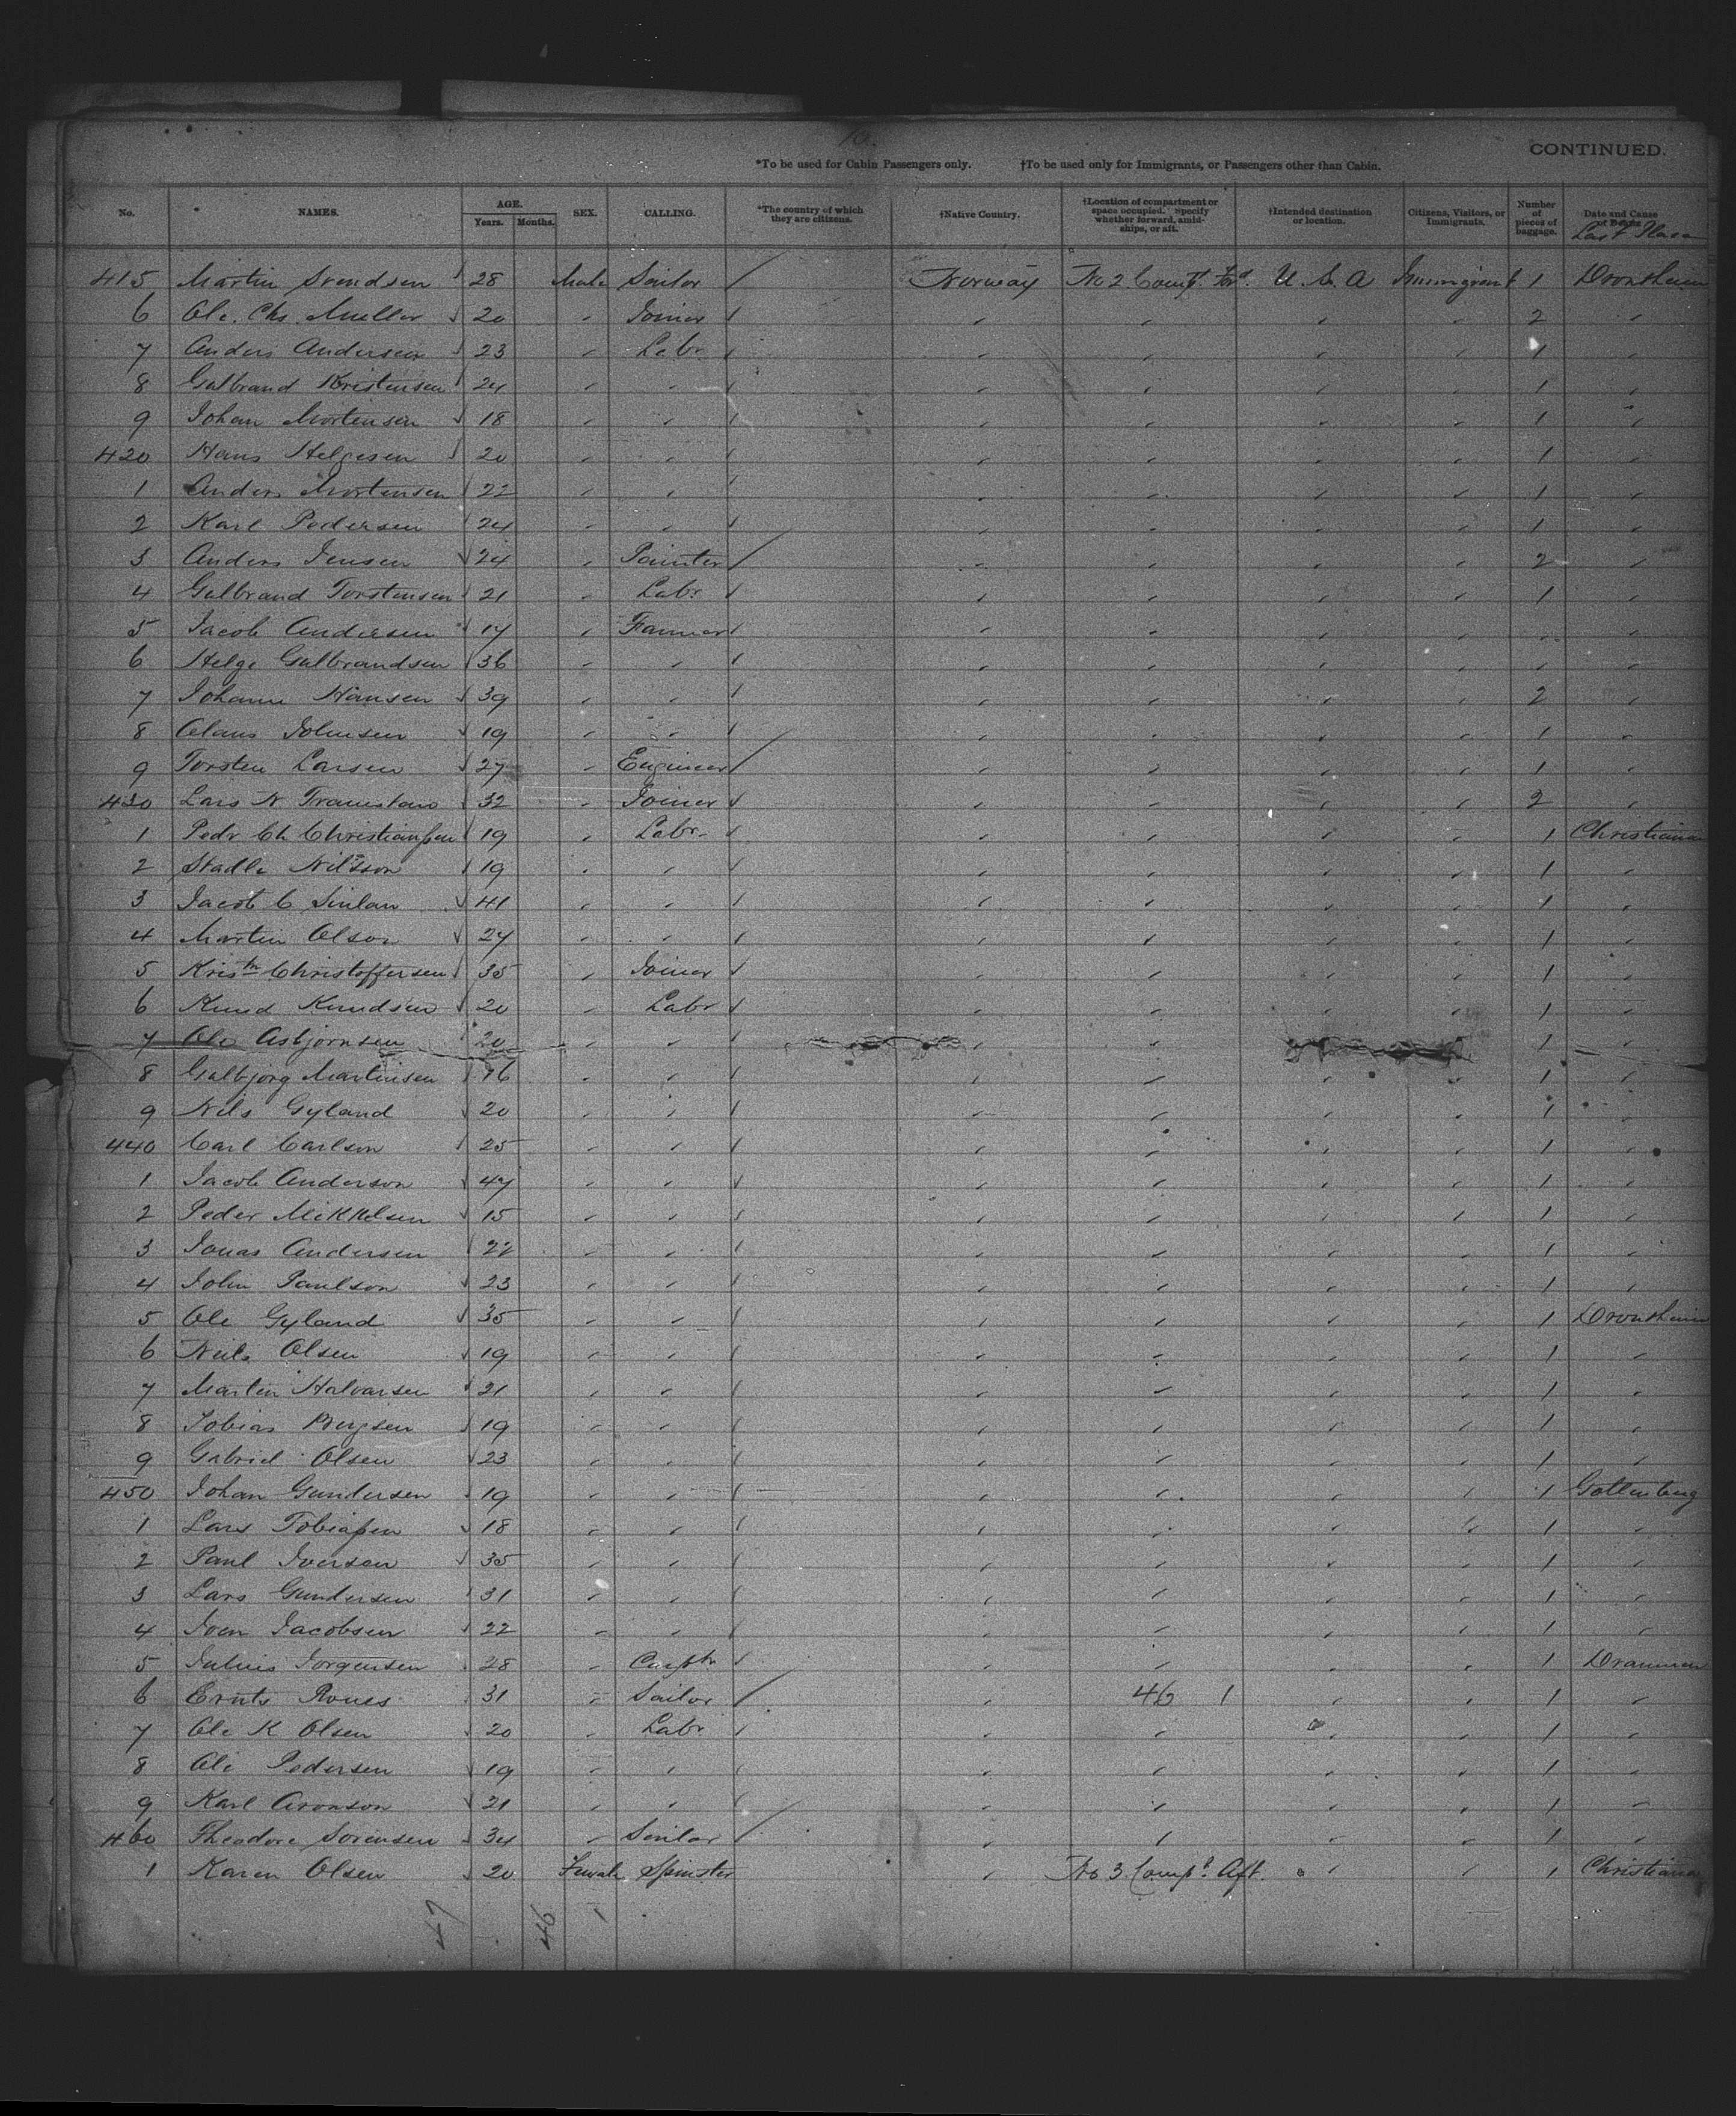 10.
CONTINUED.
*To be used for Cabin Passengers only. †To be used only for Immigrants, or Passengers other than Cabin.
No. NAMES. AGE. Years. Months. SEX. CALLING. *The country of which they are citizens. †Native Country. †Location of compartment or space occupied. Specify whether forward, amidships, or aft. †Intended destination or location. Citizens, Visitors, or Immigrants. Number of pieces of baggage. Date and Cause of Death. Last Place
415 Martin Svendsen 28 Male Sailor Norway No 2 Compt. Fd. U. S. A Immigrant 1 Drontheim
6 Ole. Chs. Muller 20 " Joiner " " " " 2 "
7 Anders Andersen 23 " Labr " " " " 1 "
8 Gulbrand Kristensen 24 " " " " " " 1 "
9 Johan Mortensen 18 " " " " " " 1 "
420 Hans Helgesen 20 " " " " " " 1 "
1 Anders Mortensen 22 " " " " " " 1 "
2 Karl Pedersen 24 " " " " " " 1 "
3 Anders Jensen 24 " Painter " " " " 2 "
4 Gulbrand Torstensen 21 " Labr " " " " 1 "
5 Jacob Andersen 17 " Farmer " " " " " "
6 Helge Gulbrandsen 36 " " " " " " " "
7 Johann Hansen 39 " " " " " " 2 "
8 Olaus Johnsen 19 " " " " " " 1 "
9 Torsten Larsen 27 " Engineer " " " " 1 "
430 Lars N 32 " Joiner " " " " 2 "
1 Pedr Ch Christianssen 19 " Labr " " " " 1 Christiana
2 Stadle Nilsson 19 " " " " " " 1 "
3 Jacob C 41 " " " " " " 1 "
4 Martin Olson 27 " " " " " " 1 "
5 Kristn Christoffersen 35 " Joiner " " " " 1 "
6 Knud Knudsen 20 " Labr " " " " 1 "
7 Ole Asbjornsen 20 " " " " " " 1 "
8 Gulbjorg Martinsen 16 " " " " " " 1 "
9 Nils Gyland 20 " " " " " " 1 "
440 Carl Carlson 25 " " " " " " 1 "
1 Jacob Anderson 47 " " " " " " 1 "
2 Peder Mikkelsen 15 " " " " " " 1 "
3 Jonas Andersen 22 " " " " " " 1 "
4 John Paulson 23 " " " " " " 1 "
5 Ole Gyland 35 " " " " " " 1 Drontheim
6 Niels Olsen 19 " " " " " " 1 "
7 Martin Halvarsen 21 " " " " " " 1 "
8 Tobias Bergsen 19 " " " " " " 1 "
9 Gabriel Olsen 23 " " " " " " 1 "
450 Johan Gundersen 19 " " " " " " 1 Gottenburg
1 Lars Tobiassen 18 " " " " " " 1 "
2 Paul Iversen 35 " " " " " " 1 "
3 Lars Gundersen 31 " " " " " " 1 "
4 Iven Jacobsen 22 " " " " " " 1 "
5 Julius Jorgensen 28 " Carptr " " " " 1 Drammen
6 31 " Sailor " 46 1 " " 1 "
7 Ole K Olsen 20 " Labr " " " " 1 "
8 Ole Pedersen 19 " " " " " " 1 "
9 Karl Aronson 21 " " " " " " 1 "
460 Theodore Sorensen 34 " Sailor " " " " 1 "
1 Karen Olsen 20 Female Spinster " No 3 Compt. Aft. " " 1 Christiana
47 46 1